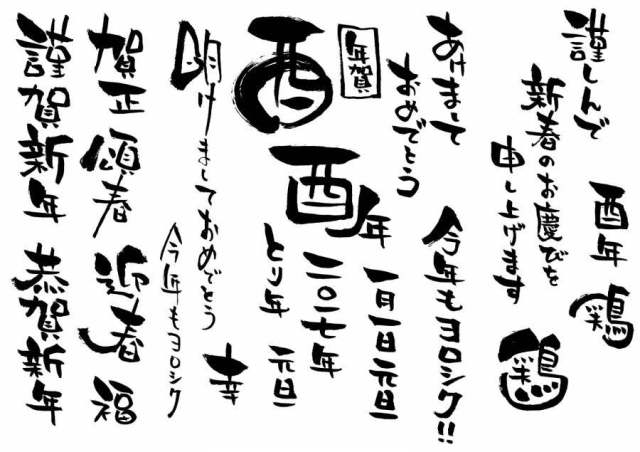 謹んで
新春のお慶びを
申し上げます
酉年
鶏
鶏
あけまして
おめでとう
今年もヨロシク!!
年賀
酉
酉年
一月一日元旦
二〇一七年
とり年
元旦
明けましておめでとう
今年もヨロシク
幸
賀正
頌春
迎春
福
謹賀新年
恭賀新年